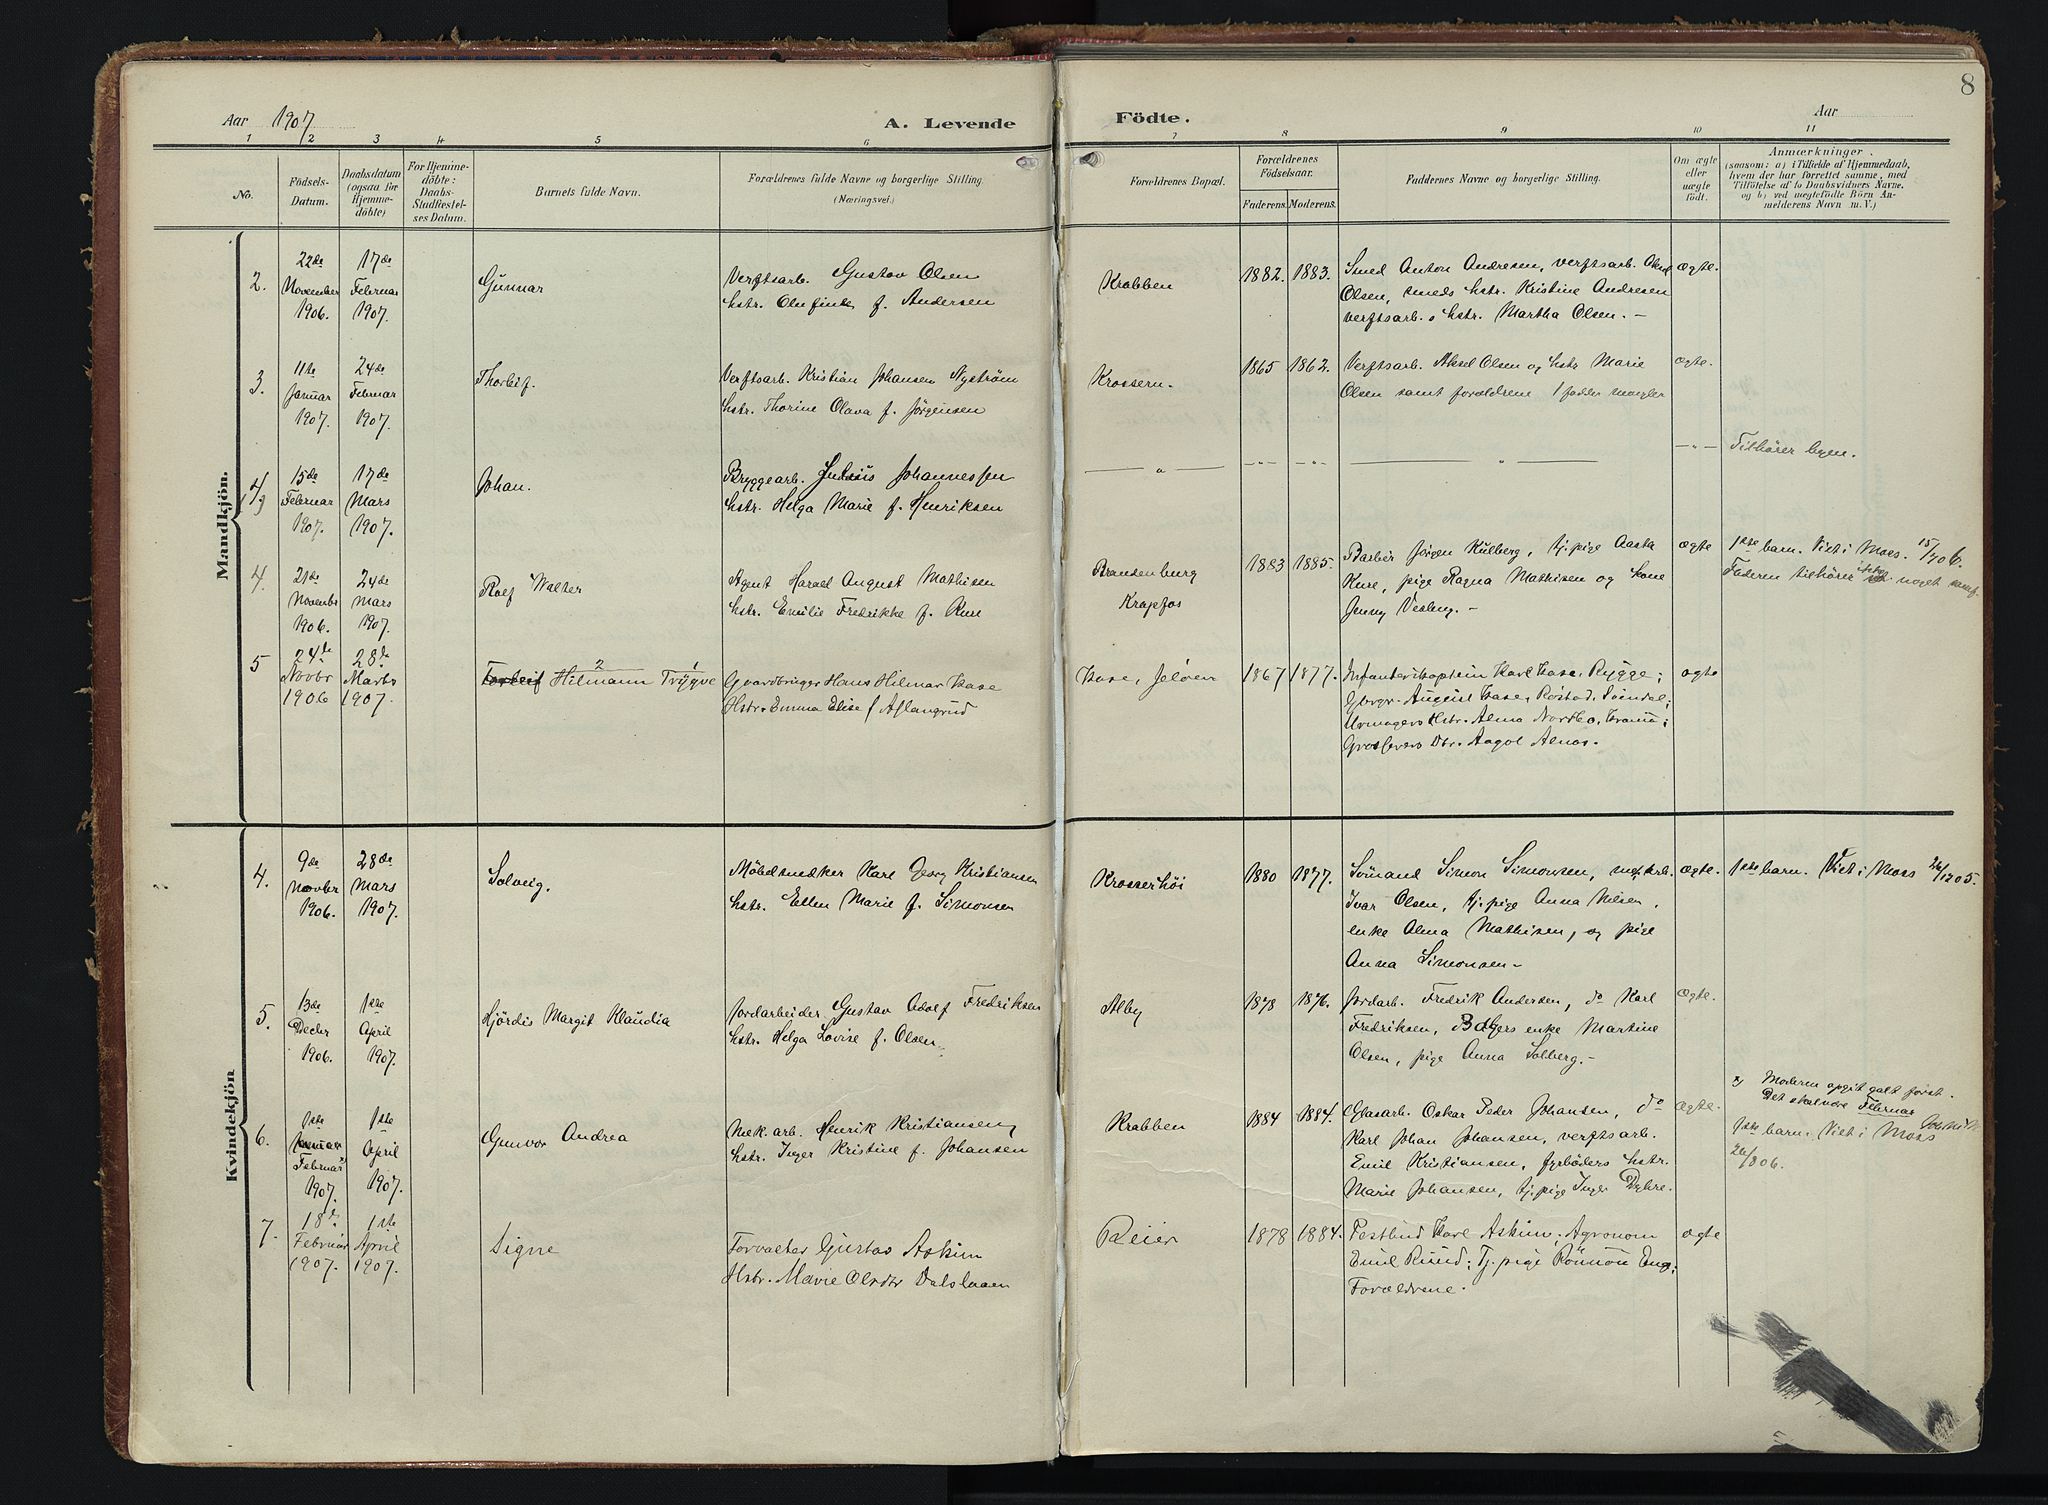 8
Aar 1907
A. Levende Födte.
Aar
1 2 3 4 5 6 7 8 9 10 11
No.
Födsels-Datum.
Daabsdatum (ogsaa for Hjemme-döbte)
For Hjemme-döbte: Daabs-Stadfæstel-ses Datum.
Barnets fulde Navn.
Forældrenes fulde Navne og borgerlige Stilling.
(Næringsvei.)
Forældrenes Bopæl.
Forældrenes Födselsaar.
Faderens. Moderens.
Faddernes Navne og borgerlige Stilling.
Om ægte eller uægte födt.
Anmærkninger.
(saasom: a) i Tilfælde af Hjemmedaab,
hvem der har forrettet samme, med
Tilföielse af to Daabsvidners Navne,
og b) ved uægtefödte Börn An-
melderens Navn m. V.)
Mandkjön.
2.
22de November 1906.
17de Februar 1907.
Gunnar
Verftsarb. Gustav Olsen
hstr. Olufine f. Andersen
Krabben
1882. 1883.
Smed Anton Andresen, verftsarb.
Olsen, smeds hstr. Kristine Andresen
verftsarb.s hstr. Martha Olsen. –
ægte.
3.
11te Januar 1907.
24de Februar 1907.
Thorleif.
Verftsarb. Kristian Johansen Nyström
hstr. Thorine Olava f. Jörgensen
Krossern.
1865 1862.
Verftsarb. Aksel Olsen og hstr Marie
Olsen samt forældrene 1 fadder mangler
ægte.
15de Februar 1907.
17de Mars 1907.
Johan.
Bryggearb. Julius Johannessen
hstr. Helga Marie f. Henriksen
— " —
— " —
— " —
— " —
— " —
Tilhörer byen.
4.
21de Novembr 1906.
24de Mars 1907.
Rolf Walter
Agent Harald August Mathisen
hstr. Emilie Fredrikke f. Kure
Brandenburg
Krapfos
1883 1885.
Barber Jörgen Kulberg, tj.pige Aasta
Kure, pige Ragna Mathisen og kone
Jenny Vesling. –
ægte
1ste barn. Viet i Moss. 15/4 06.
Faderen tilhörer ikke noget samf.
5
24de Novbr 1906
28de Marts 1907.
Torleif Hilmann 2 Trygve 1
Gaardbruger Hans Hilmar Kase
Hstr. Emma Elise f Aslangrud
Kase, Jelöen
1867 1877.
Infanterikaptein Karl Kase, Rygge;
Gbrgr. August Kase, Röstad, Svindal;
Urmagers Hstr. Alma Nordbo,
Grosserers Dtr. Aagot Alnæs.
ægte
Kvindekjön
4.
9de Novbr 1906.
28de Mars 1907.
Solveig.
Möbelsnedker Karl Georg Kristiansen
hstr. Ellen Marie f. Simonsen
Krosserhöi
1880 1877.
Sömand Simon Simonsen, mek. arb.
Ivar Olsen, tj.pige Anna Nilsen,
enke Alma Mathisen, og pige
Anna Simonsen –
ægte.
1ste barn. Viet i Moss 26/12 05.
5.
13de Decbr 1906.
1ste April 1907.
Hjördis Margit Klaudia
Jordarbeider Gustav Adolf Fredriksen
hstr. Helga Lovise f. Olsen
Alby
1878 1876.
Jordarb. Fredrik Andersen, do Karl
Fredriksen, enke Martine
Olsen, pige Anna Solberg. –
ægte.
6.
1ste Januar Februar x) 1907.
1ste April 1907.
Gunvor Andrea
Mek. arb. Henrik Kristiansen
hstr. Inger Kristine f. Johansen
Krabben
1884 1884.
Glasarb. Oskar Peder Johansen, do
Karl Johan Johansen, verftsarb.
Emil Kristiansen, fyrböders hstr.
Marie Johansen, tj.pige Inger Dyhre.
ægte.
x) Moderen opgit galt först.
Det skal være Februar
1ste barn. Viet i Moss
26/8 06.
7.
18de Februar 1907.
1ste April 1907.
Signe
Forvalter Gustav Askim
Hstr. Marie Olsdtr Dalslaaen
Reier
1878 1884.
Postbud Karl Askim; Agronom
Emil Ruud; Tj.pige Rönnög Eng;
Forældrene.
ægte